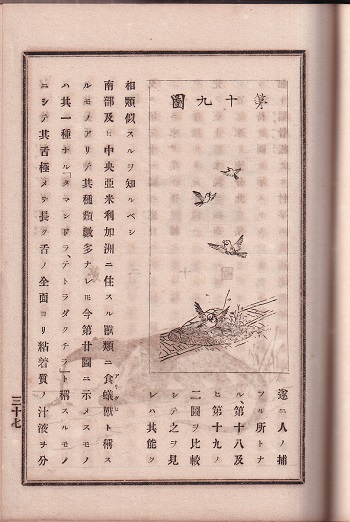 第十九圖
遂ニ人ノ捕
フル所トナ
ル、第十八及
ヒ第十九ノ
二圖ヲ比較
シテ之ヲ見
レハ其能ク
相類似スルヲ知ルベシ
南部及ヒ中央亞米利加洲ニ住スル獸類ニ食蟻獸ト稱ス
アリクヒ
ルモノアリテ其種類數多ナレ𪜈今第廿圖ニ示メスモノ
ハ其一種ナル「タマンドラ、テトラダクチラ」ト稱スルモノ
ニシテ其舌極メテ長ク舌ノ全面ヨリ粘着質ノ汁液ヲ分
三十七